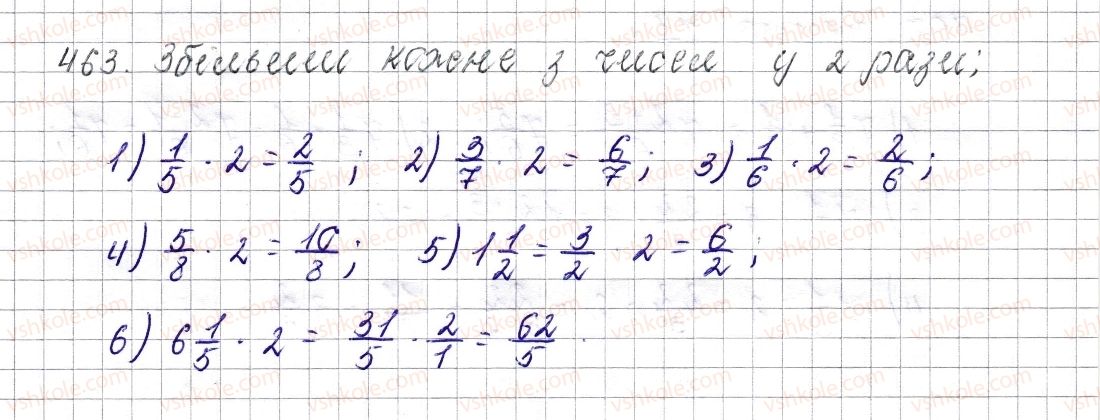 463. Збільшили кожне з чисел у 2 рази;
1) 1/5 · 2 = 2/5 ; 2) 3/7 · 2 = 6/7 ; 3) 1/6 · 2 = 2/6 ;
4) 5/8 · 2 = 10/8 ; 5) 1 1/2 = 3/2 · 2 = 6/2 ;
6) 6 1/5 · 2 = 31/5 · 2/1 = 62/5 .